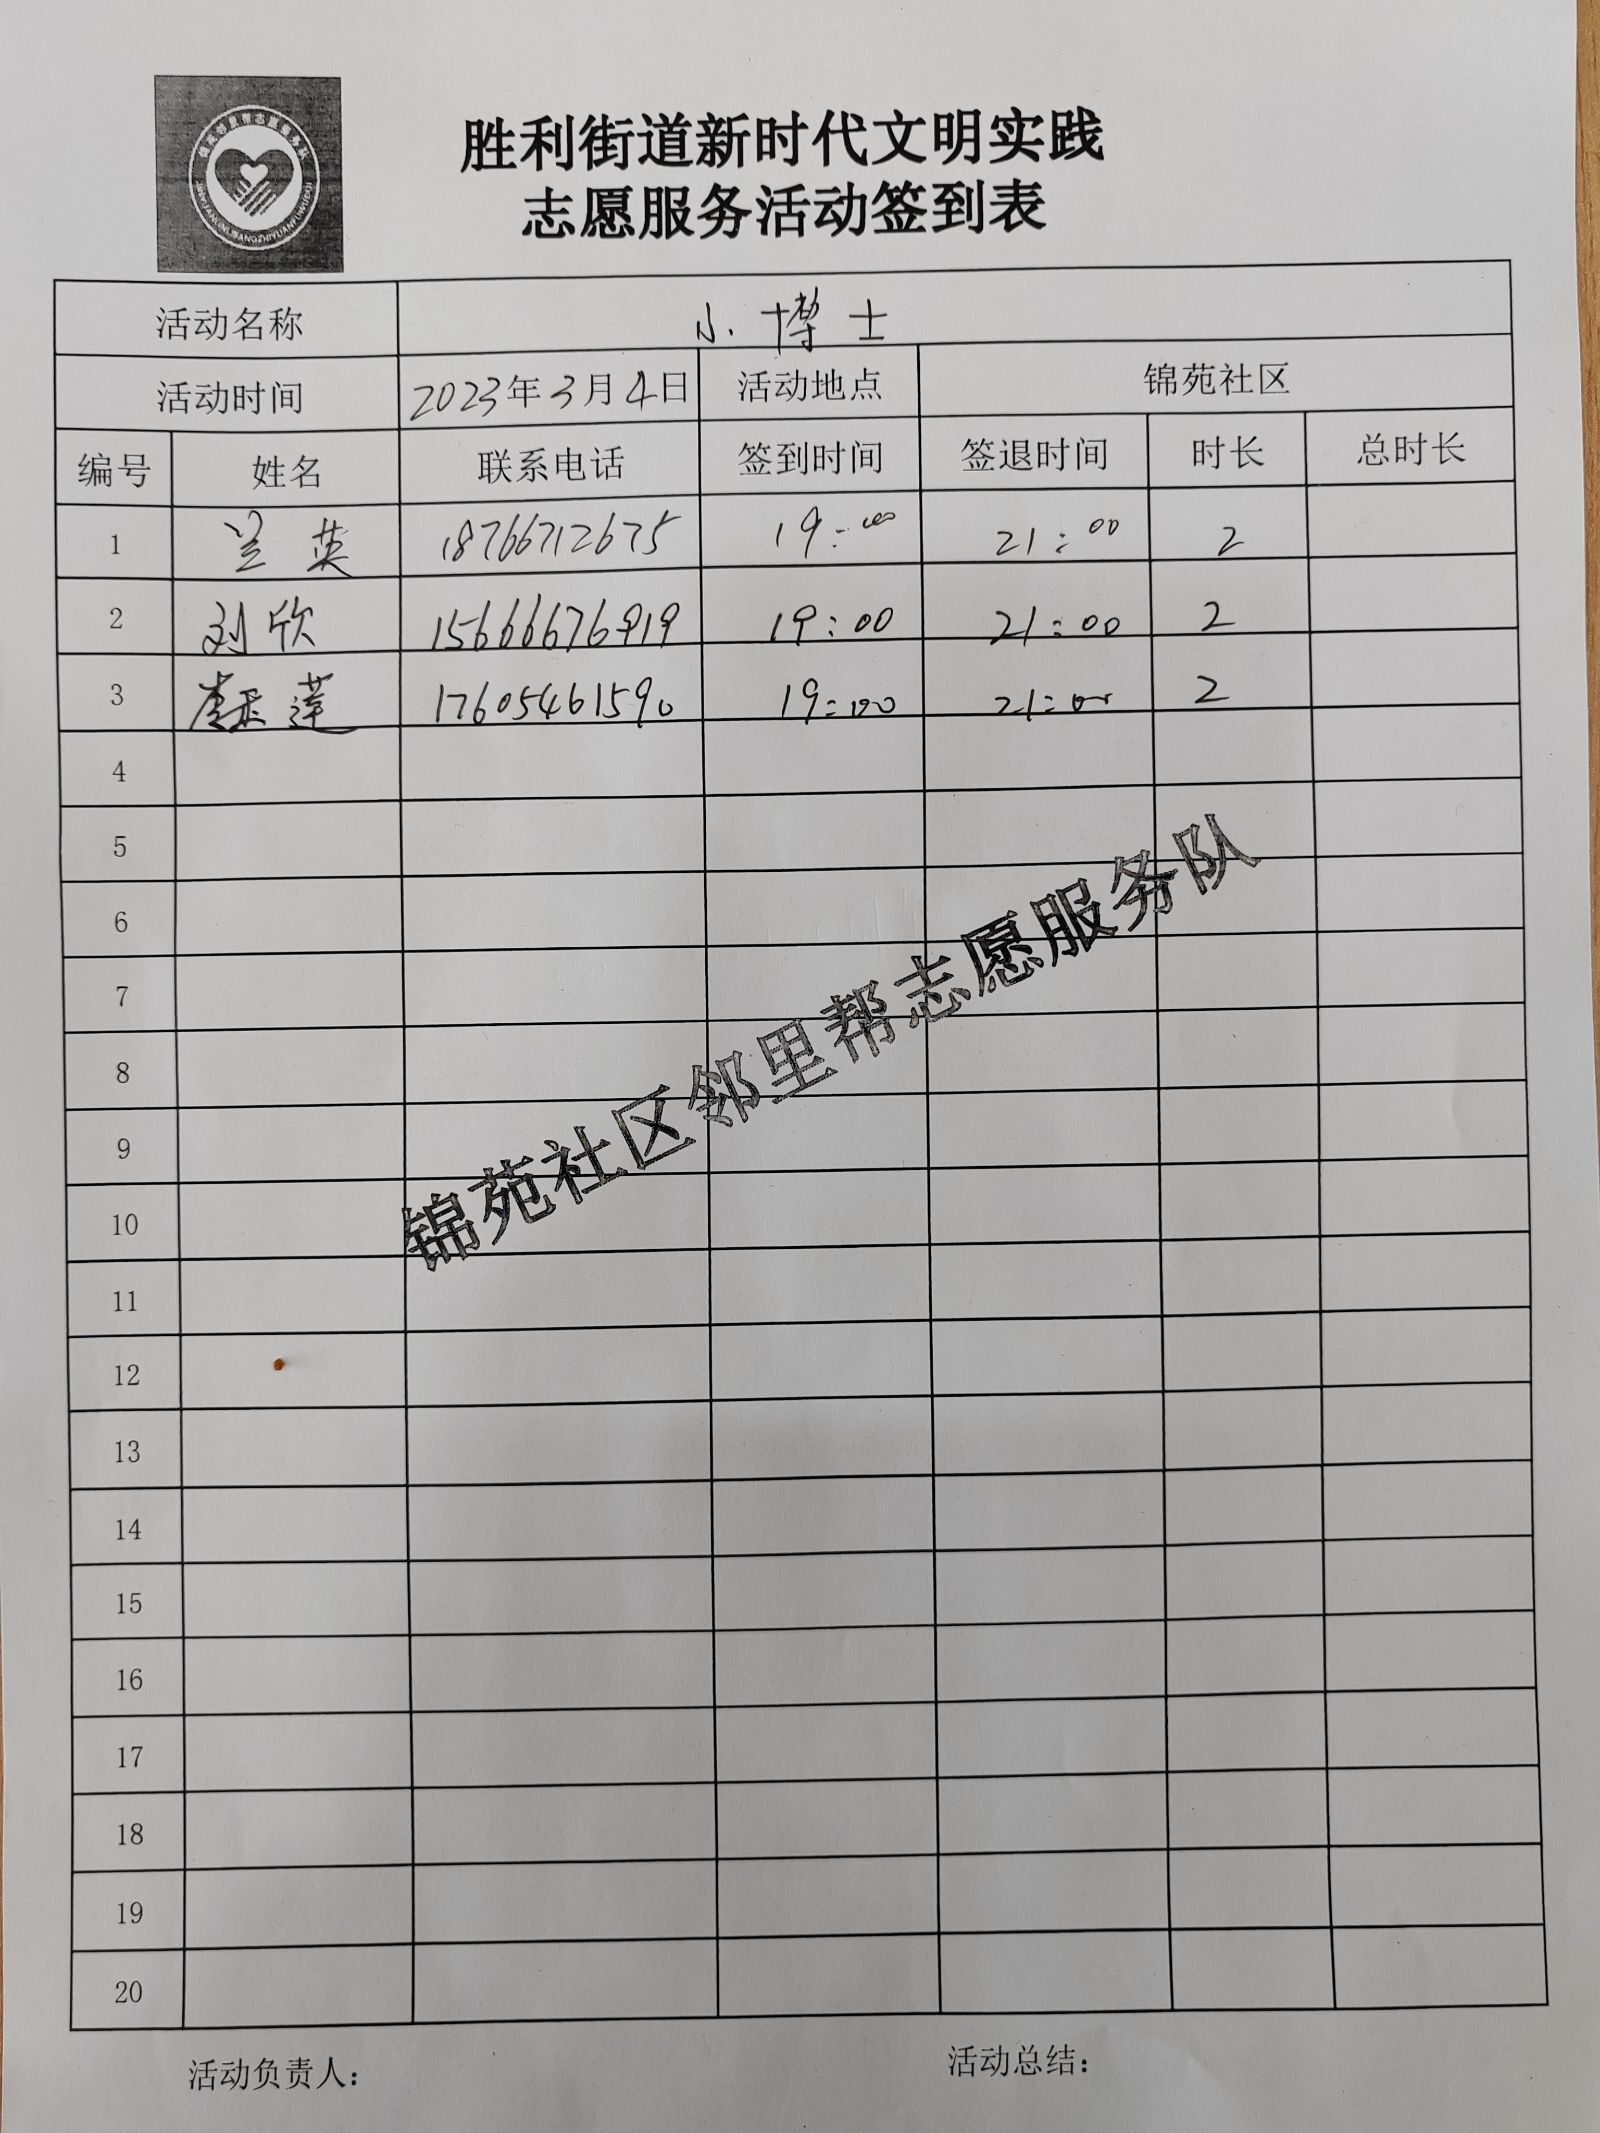 胜利街道新时代文明实践
志愿服务活动签到表
活动名称 小博士
活动时间 2023年3月4日 活动地点 锦苑社区
编号 姓名 联系电话 签到时间 签退时间 时长 总时长
1 兰英 18766712675 19:00 21:00 2
2 刘欣 15666676919 19:00 21:00 2
3 李玉莲 17605461590 19:00 21:00 2
4
5
6
7
8
9
10
11
12
13
14
15
16
17
18
19
20
锦苑社区邻里帮志愿服务队
活动负责人: 活动总结: